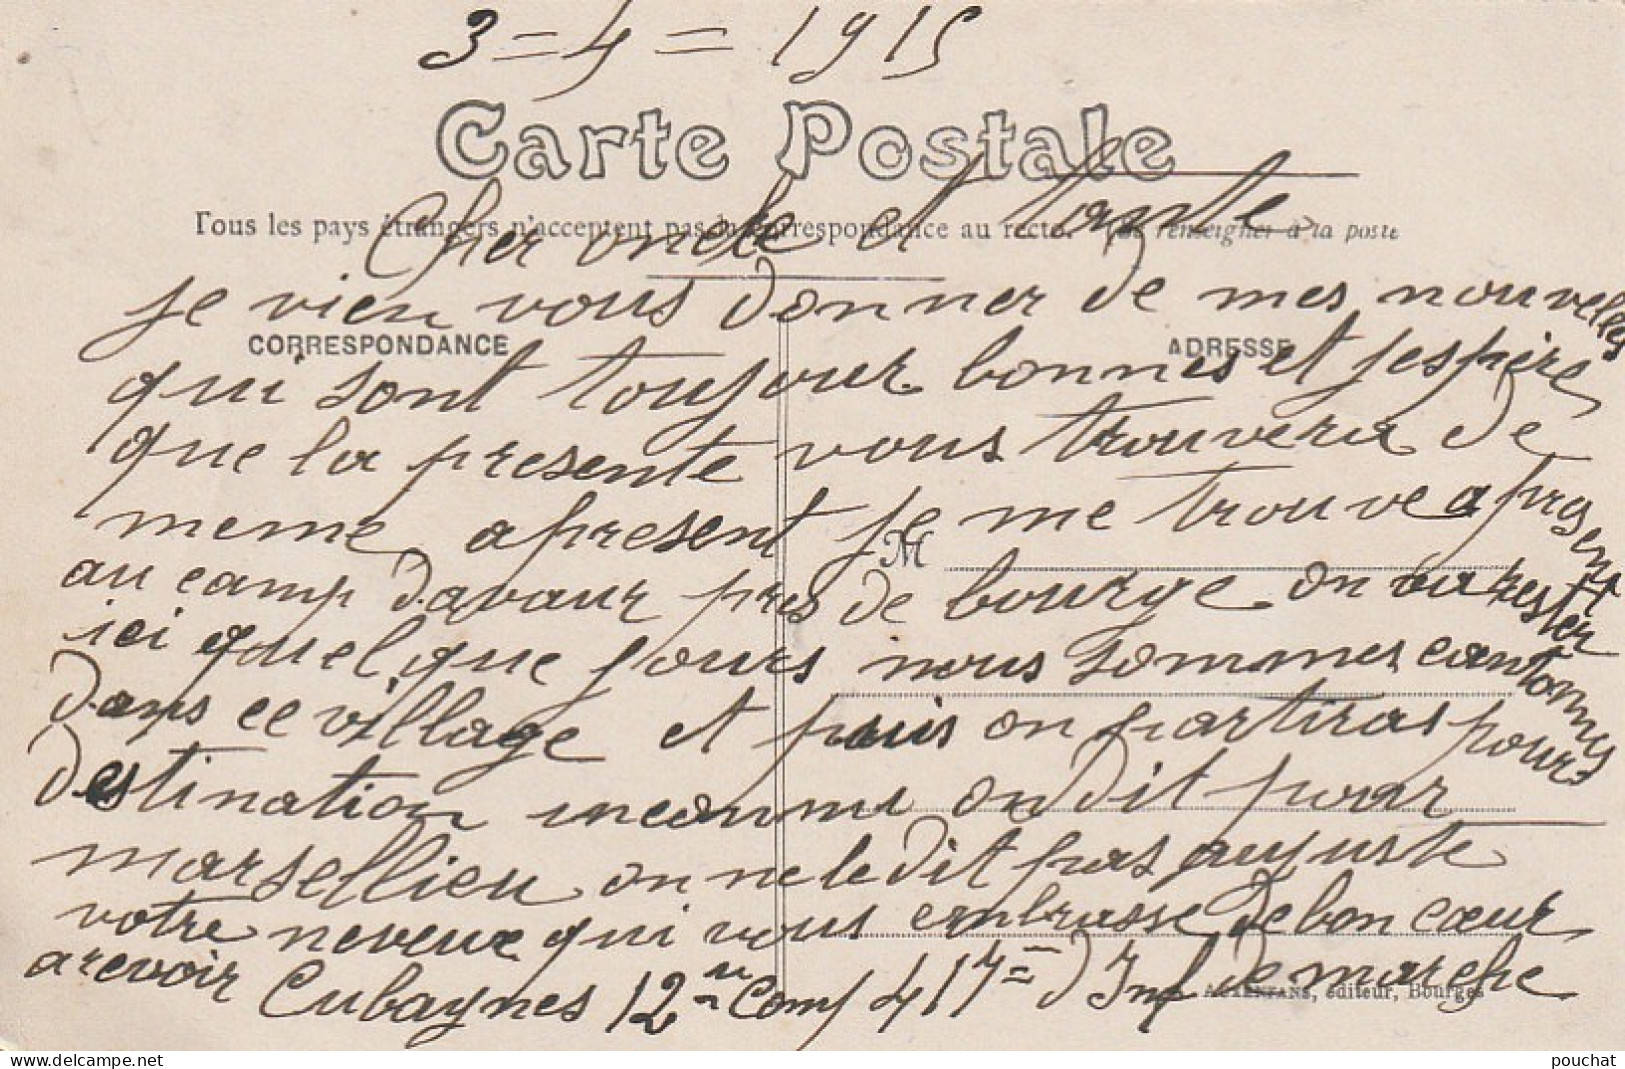 3 = 4 = 1915
Carte Postale
Tous les pays étrangers n'acceptent pas la correspondance au recto. (Se renseigner à la poste
Cher oncle et tante
je vien vous donner de mes nouvelles
CORRESPONDANCE
ADRESSE
qui sont toujour bonnes et jespère
que la presente vous trouvera de
meme apresent je me trouve apresent
M
au camp davaur pres de bourge on va rester
ici quelque jours nous sommes cantonnes
dans ce village et puis on partiras pour
destination inconnu on dit pour
marsellieu on ne le dit pas auguste
votre neveux qui vous embrasse de bon cœur
arevoir Cubaynes 12 Comp 417 = d Inf de marche
éditeur, Bourges
pouchat